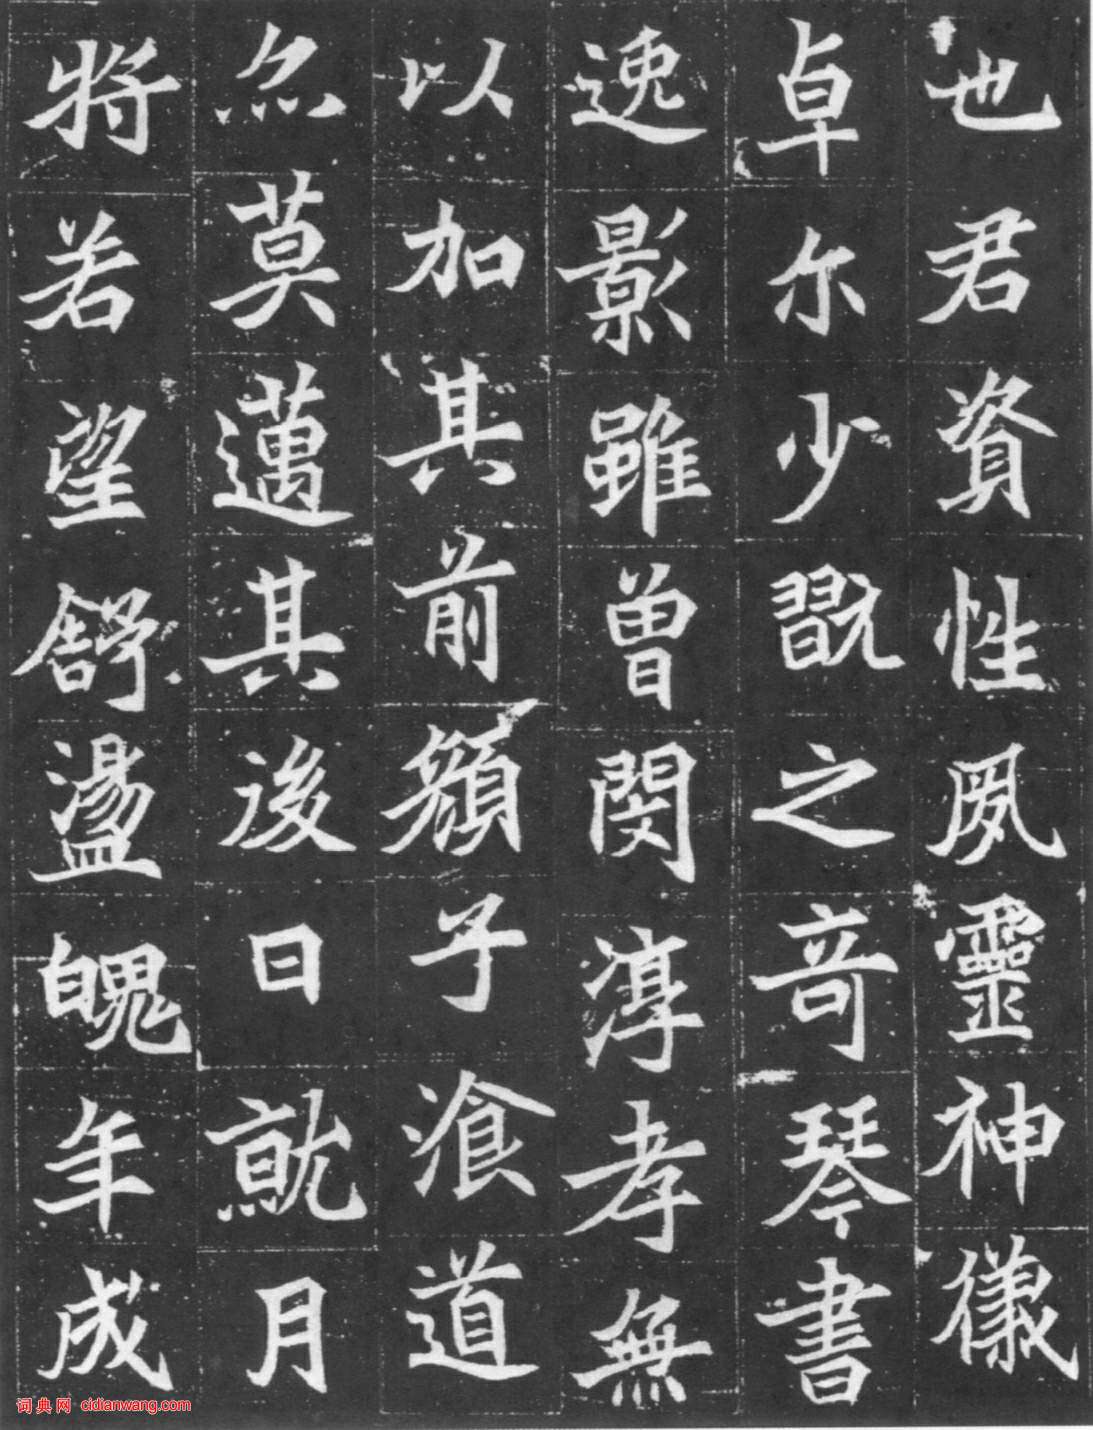 也君資性夙靈神儀
卓尓少翫之奇琴書
逸影雖曾閔淳孝無
以加其前顏子湌道
亦莫邁其後日就月
將若望舒盪魄年成
词典网 cidianwang.com